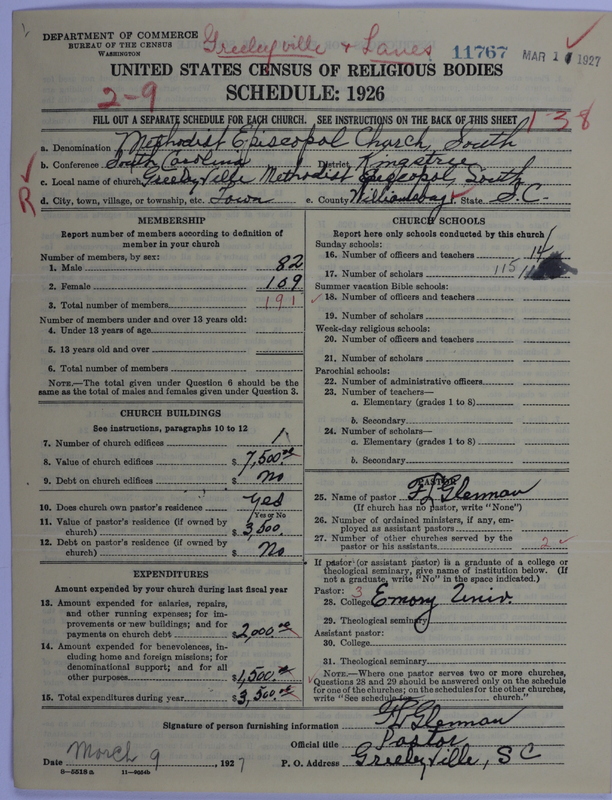 DEPARTMENT OF COMMERCE
BUREAU OF THE CENSUS
WASHINGTON
Greeleyville & Lanes
11767
MAR 1 1927
UNITED STATES CENSUS OF RELIGIOUS BODIES
SCHEDULE: 1926
2-9
138
FILL OUT A SEPARATE SCHEDULE FOR EACH CHURCH. SEE INSTRUCTIONS ON THE BACK OF THIS SHEET
a. Denomination Methodist Episcopal Church, South
b. Conference South Carolina District Kingstree
c. Local name of church Greeleyville Methodist Episcopal, South
R
d. City, town, village, or township, etc. Town e. County Williamsburg State S.C.
MEMBERSHIP
Report number of members according to definition of
member in your church
Number of members, by sex:
1. Male 82
2. Female 109
3. Total number of members 191
Number of members under and over 13 years old:
4. Under 13 years of age
5. 13 years old and over
6. Total number of members
NOTE.—The total given under Question 6 should be the
same as the total of males and females given under Question 3.
CHURCH BUILDINGS
See instructions, paragraphs 10 to 12
7. Number of church edifices 1
8. Value of church edifices $7,500.00
9. Debt on church edifices $ No
10. Does church own pastor's residence Yes
Yes or No
11. Value of pastor's residence (if owned by
church) $3,500.
12. Debt on pastor's residence (if owned by
church) $ No
EXPENDITURES
Amount expended by your church during last fiscal year
13. Amount expended for salaries, repairs,
and other running expenses; for im-
provements or new buildings; and for
payments on church debt $2,000.00
14. Amount expended for benevolences, in-
cluding home and foreign missions; for
denominational support; and for all
other purposes $1,500.00
15. Total expenditures during year $3,500.00
CHURCH SCHOOLS
Report here only schools conducted by this church
Sunday schools:
16. Number of officers and teachers 14
17. Number of scholars 115
Summer vacation Bible schools:
18. Number of officers and teachers
19. Number of scholars
Week-day religious schools:
20. Number of officers and teachers
21. Number of scholars
Parochial schools:
22. Number of administrative officers
23. Number of teachers—
a. Elementary (grades 1 to 8)
b. Secondary
24. Number of scholars—
a. Elementary (grades 1 to 8)
b. Secondary
PASTOR
25. Name of pastor F L Glennan
(If church has no pastor, write "None")
26. Number of ordained ministers, if any, em-
ployed as assistant pastors
27. Number of other churches served by the
pastor or his assistants 2
If pastor (or assistant pastor) is a graduate of a college or
theological seminary, give name of institution below. (If
not a graduate, write "No" in the space indicated.)
Pastor: 3
28. College Emory Univ.
29. Theological seminary
Assistant pastor:
30. College
31. Theological seminary
NOTE.—Where one pastor serves two or more churches,
Questions 28 and 29 should be answered only on the schedule
for one of the churches; on the schedules for the other churches,
write "See schedule for church."
Signature of person furnishing information F L Glennan
Official title Pastor
Date March 9, 1927 P. O. Address Greeleyville, SC
8-5518a 11-9664b